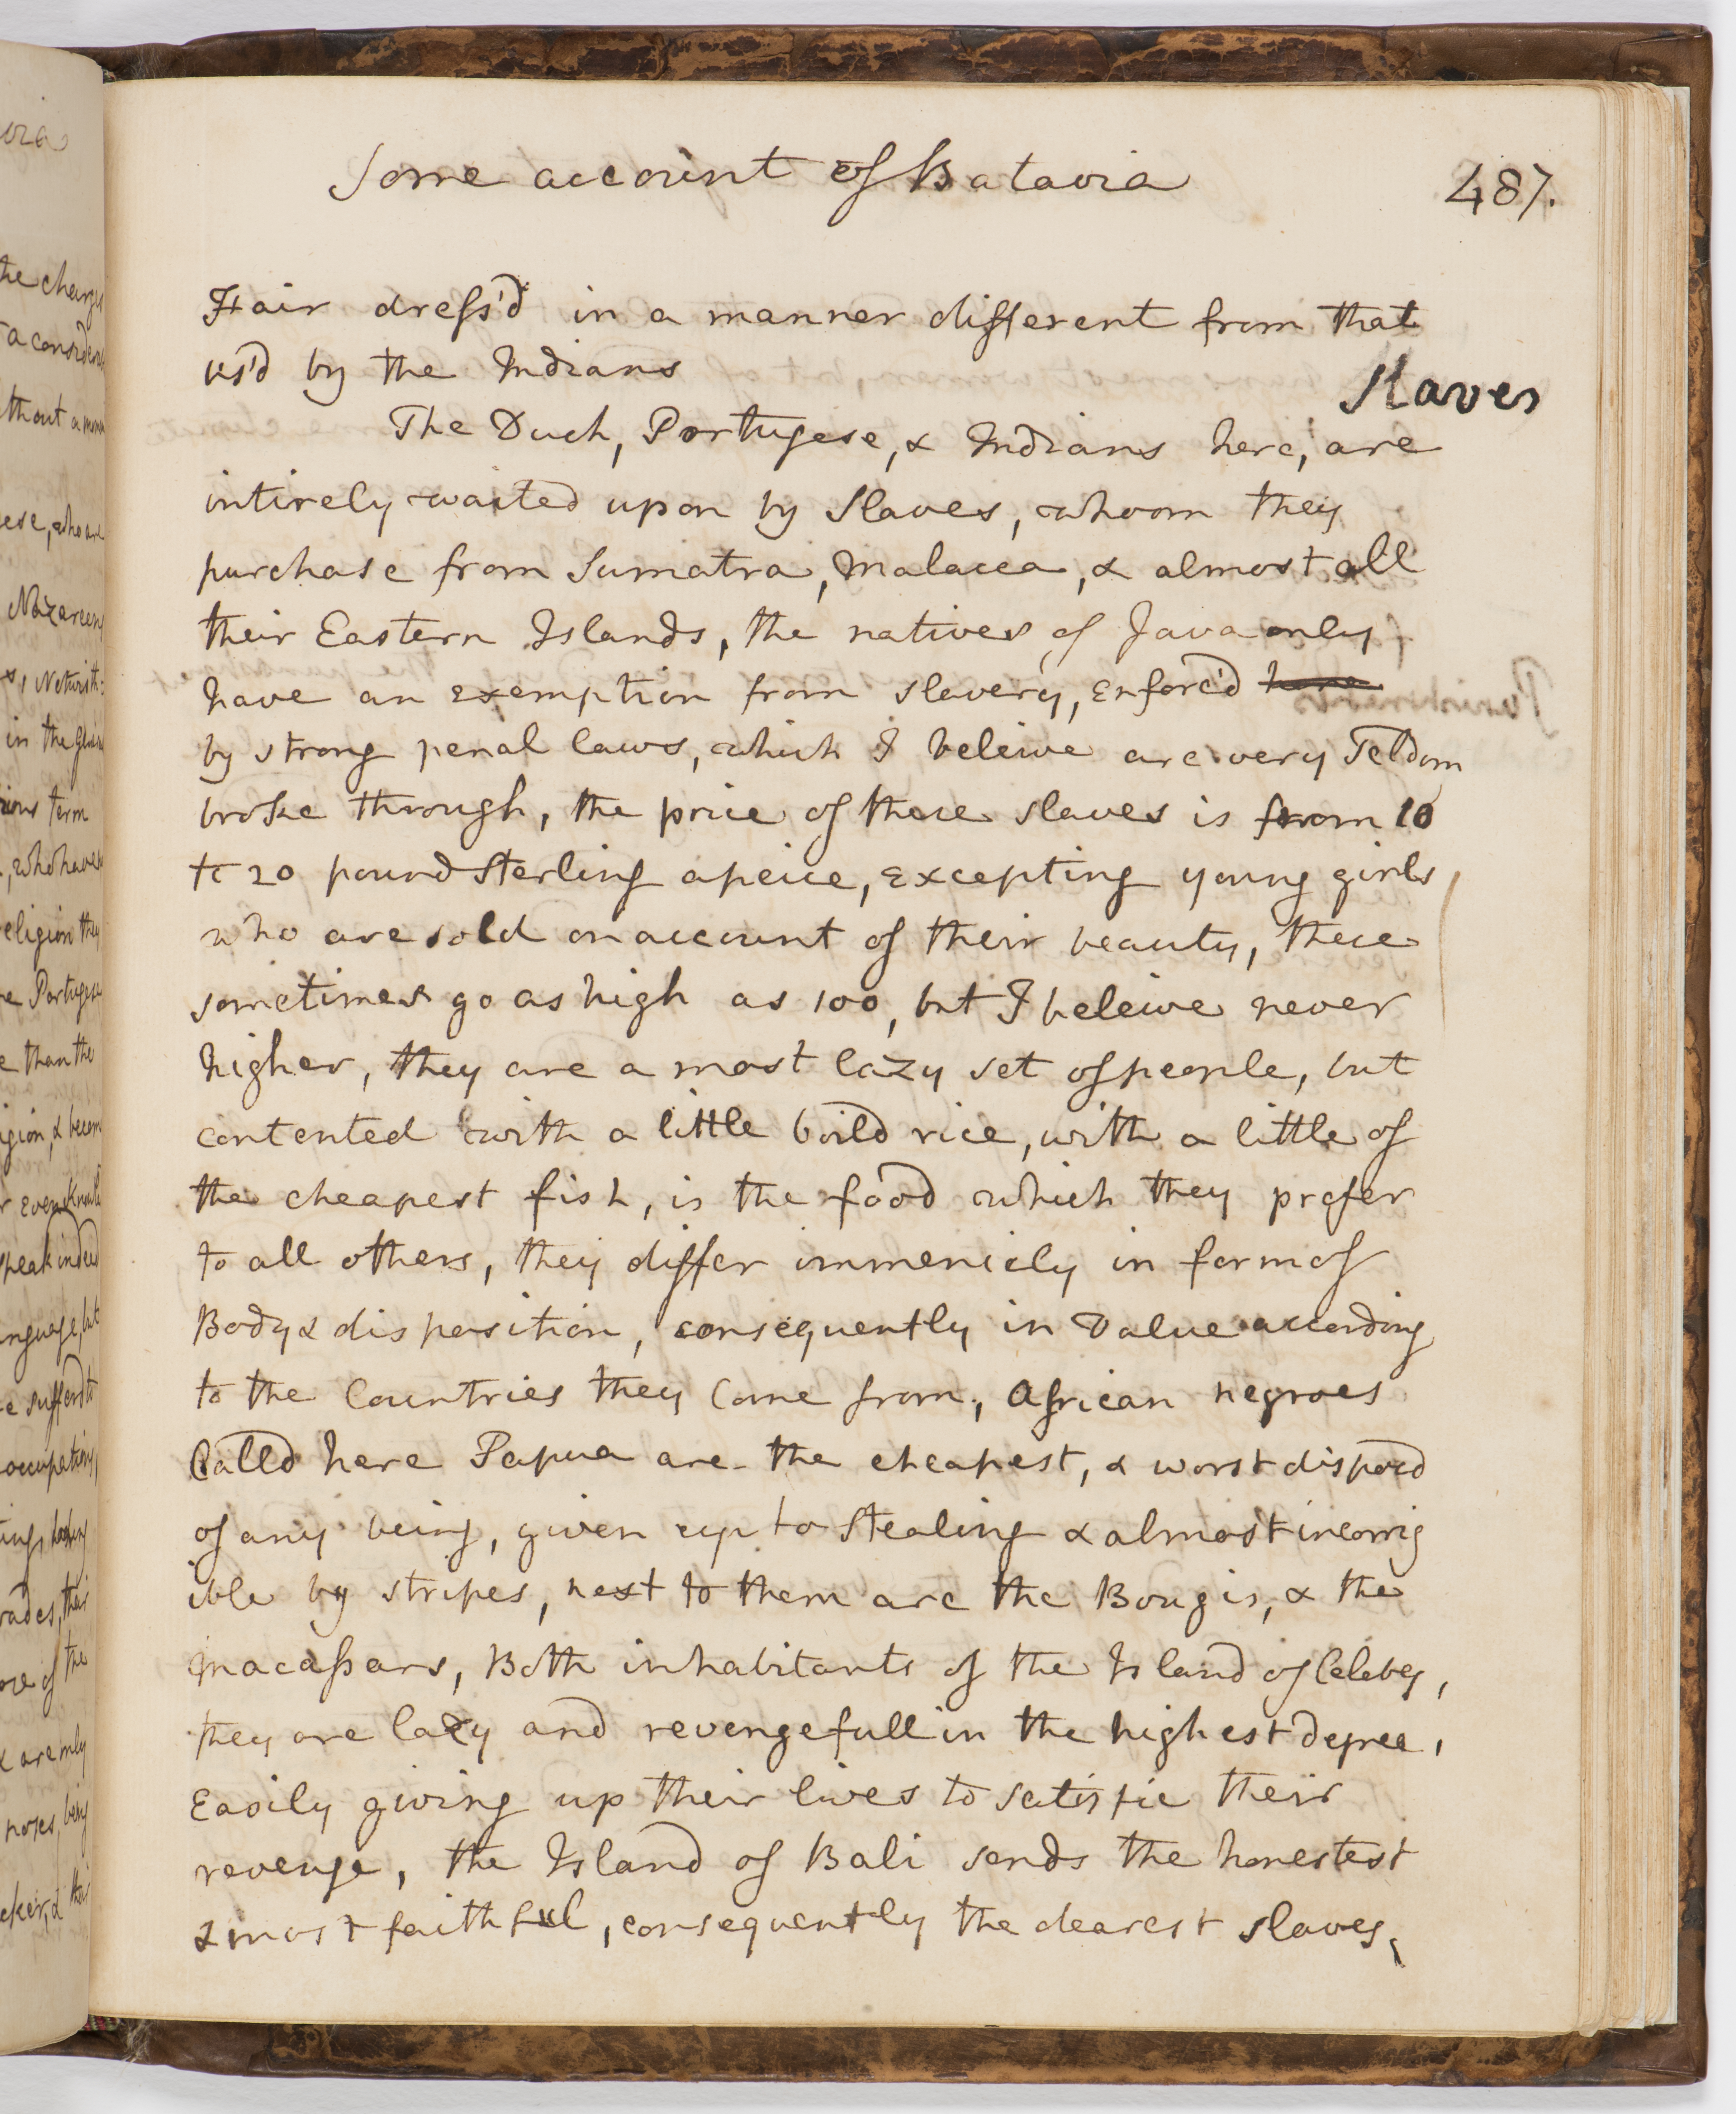 Some account of Batavia
487.
Hair dress'd in a manner different from that
us'd by the Indians
Slaves
The Duch, Portugese, & Indians here, are
intirely waited upon by Slaves, whom they
purchase from Sumatra, Malacca, & almost all
their Eastern Islands, the natives of Java only
have an exemption from slavery, enforc'd here
by strong penal laws, which I beleive are very Seldom
broke through, the price of these slaves is from 10
to 20 pound Sterling apeice, excepting young girls
who are sold on account of their beauty, these
sometimes go as high as 100, but I beleive never
higher, they are a most lazy set of people, but
contented with a little boild rice, with a little of
the cheapest fish, is the food which they prefer
to all others, they differ immensely in form of
Body & disposition, consequently in Value according
to the Countries they Come from, African negroes
Calld here Papua are the cheapest, & worst disposd
of any being, given up to Stealing & almost incorrig
ible by stripes, next to them are the Bougis, & the
Macassars, Both inhabitants of the Island of Celebes,
they are lazy and revengefull in the highest degree,
Easily giving up their lives to satisfie their
revenge, the Island of Bali sends the honestest
& most faithful, consequently the dearest slaves,
the charges
a consider
thout a
ese, who are
Nazareen
in the
term
, who have
eligion they
e Portugese
e than the
igion, &
r even
speak indeed
anguage, but
e sufferd to
occupations,
rades, their
ore of the
& are only
poses, being